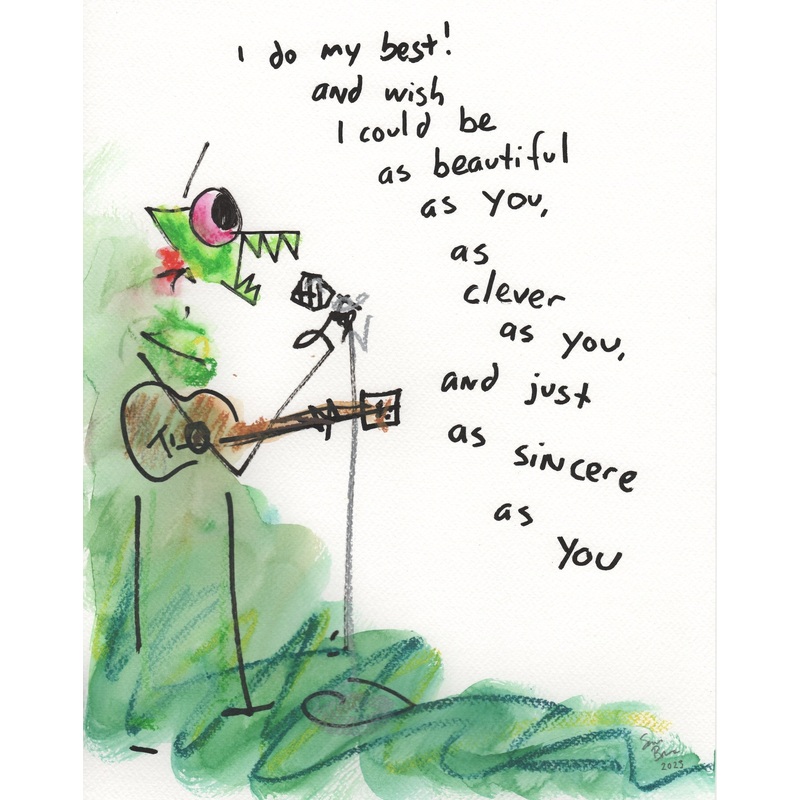 I do my best!
and wish
I could be
as beautiful
as you,
as
clever
as you,
and just
as sincere
as
you
2023